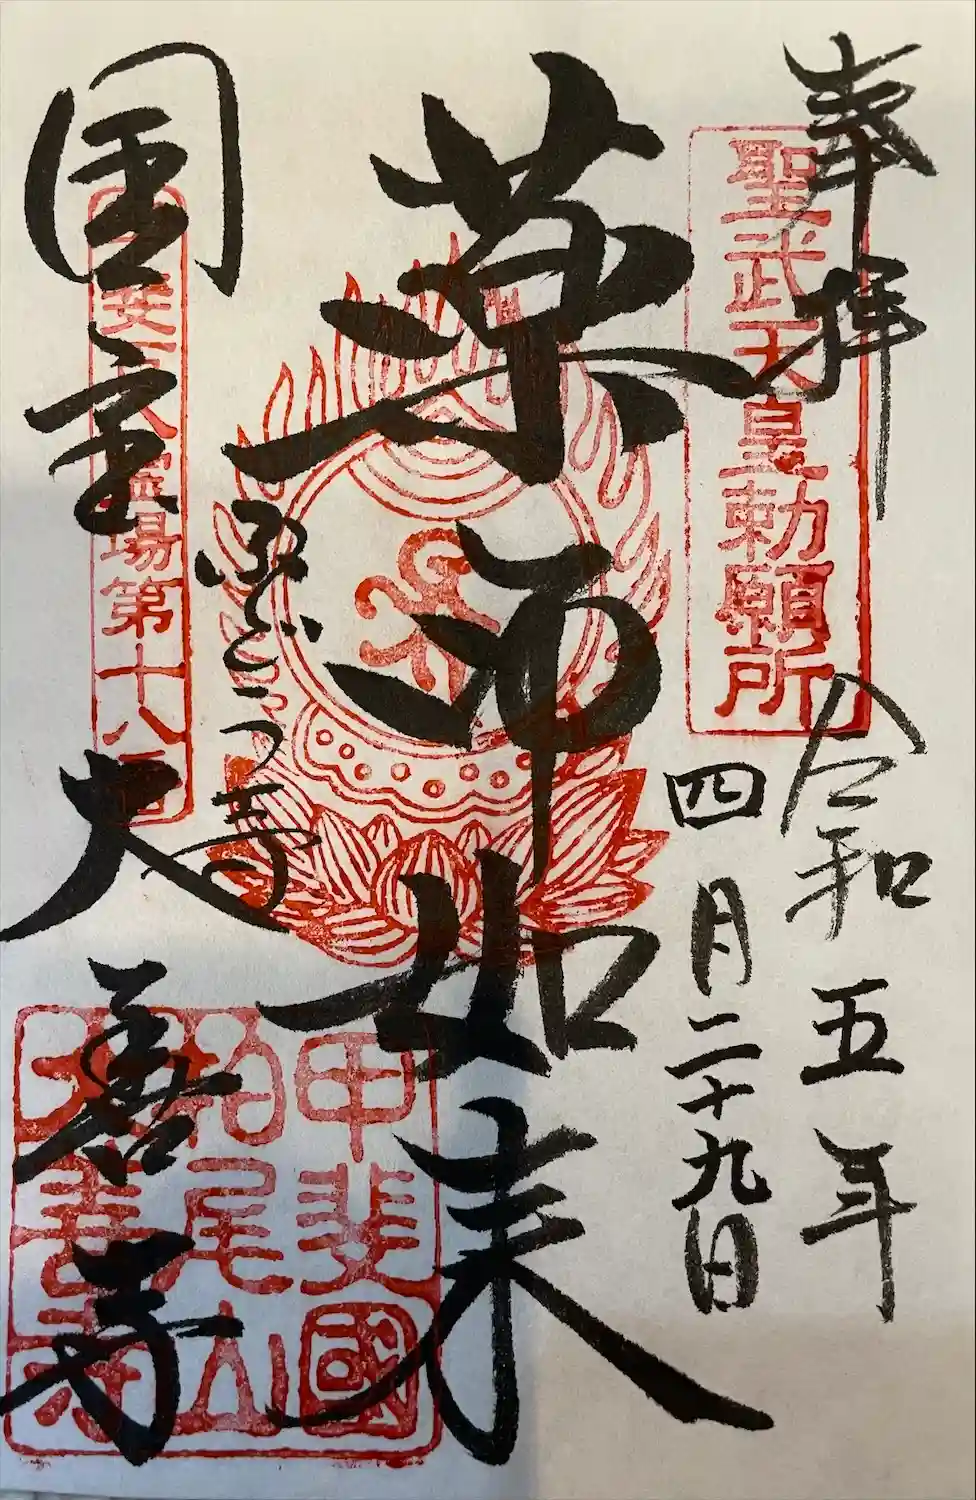 奉拝
聖武天皇勅願所
令和五年
四月二十九日
薬師如来
ぶどう寺
国宝 大善寺
甲斐百八霊場第十八番
甲斐國
柏尾山
大善寺